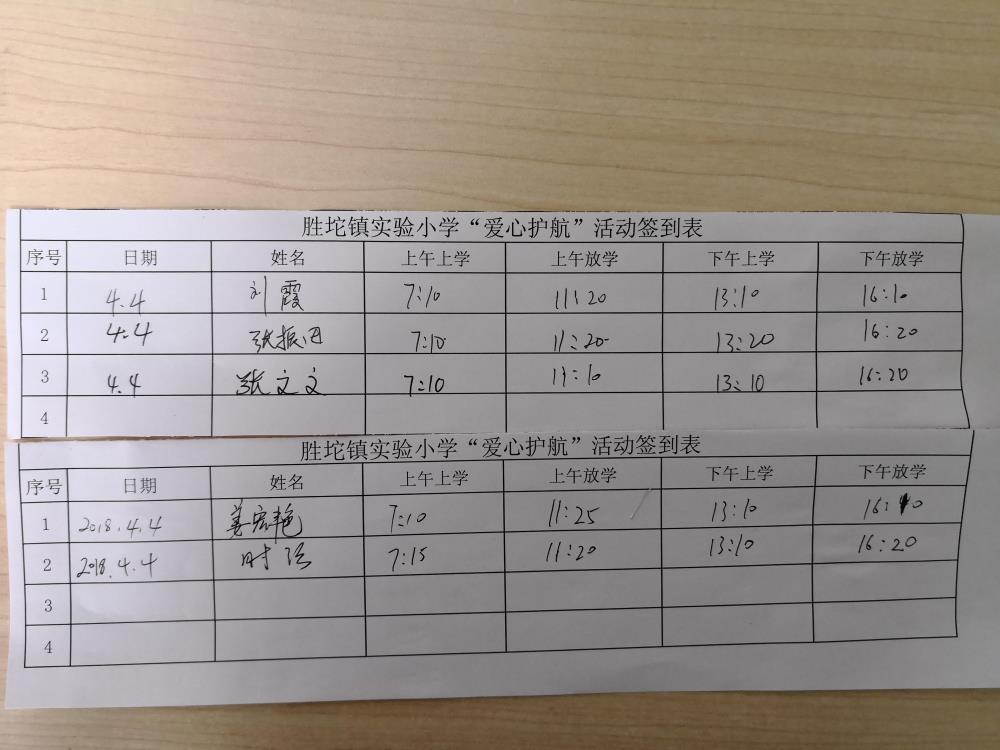 胜坨镇实验小学“爱心护航”活动签到表
序号 日期 姓名 上午上学 上午放学 下午上学 下午放学
1 4.4 刘霞 7:10 11:20 13:10 16:10
2 4.4 张振 7:10 11:20 13:20 16:20
3 4.4 张文文 7:10 11:10 13:10 16:20
4
胜坨镇实验小学“爱心护航”活动签到表
序号 日期 姓名 上午上学 上午放学 下午上学 下午放学
1 2018.4.4 姜宏艳 7:10 11:25 13:10 16:10
2 2018.4.4 时 7:15 11:20 13:10 16:20
3
4